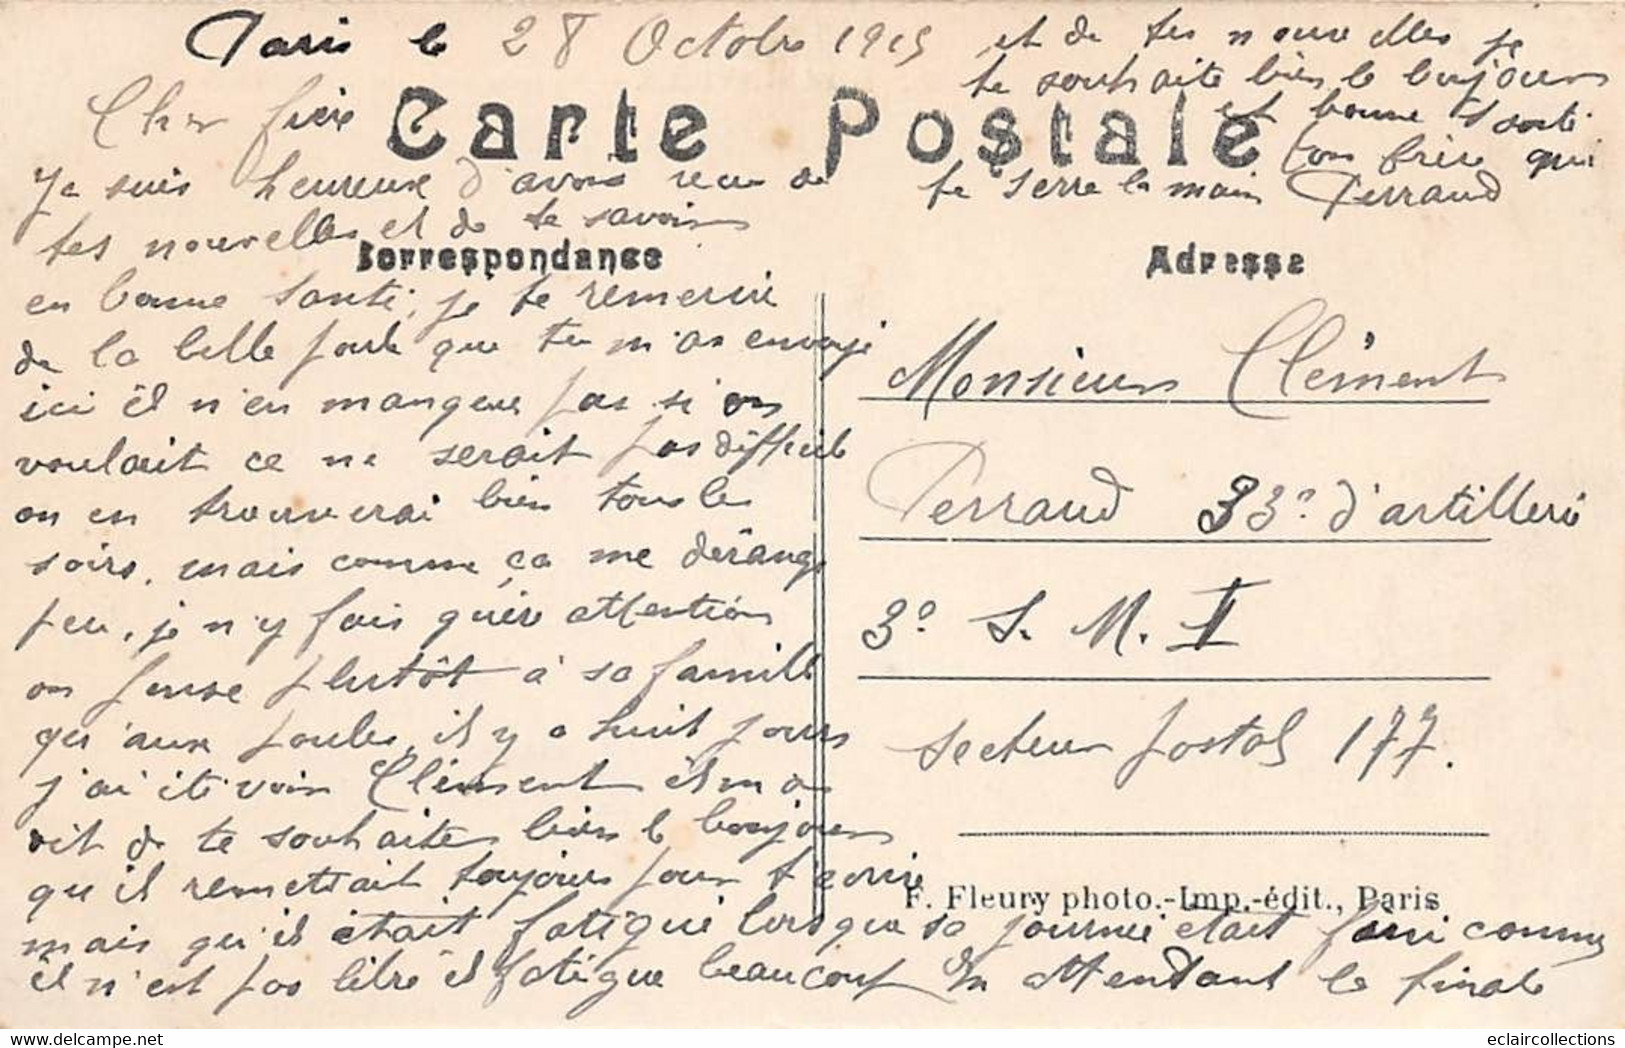 Paris le 28 Octobre 1915
Carte Postale
Cher frère
Je suis heureux d'avoir recu de
tes nouvelles et de te savoir
Correspondance
en bonne santé, je te remercie
de la belle poule que tu m'as envoyé
ici il n'en manque pas si on
voulait ce ne serait pas difficile
on en trouverai bien tous les
soirs, mais comme ça me dérange
peu, je n'y fais guère attention
on pense plutôt à sa famille
qu'aux poules, il y a huit jours
j'ai été voir Clément il m'a
dit de te souhaiter bien le bonjour
qu'il remettait toujours pour t'écrire
mais qu'il était fatigué lorsque sa journée était fini comme
il n'est pas libre il fatigue beaucoup En attendant le finale
et de tes nouvelles je
te souhaite bien le bonjour
et bonne santé
ton frère qui
te serre la main Perraud
Adresse
Monsieur Clément
Perraud 33e d'artillerie
3e S. M. I
Secteur postal 177.
F. Fleury photo.-Imp.-édit., Paris
eclaircollections